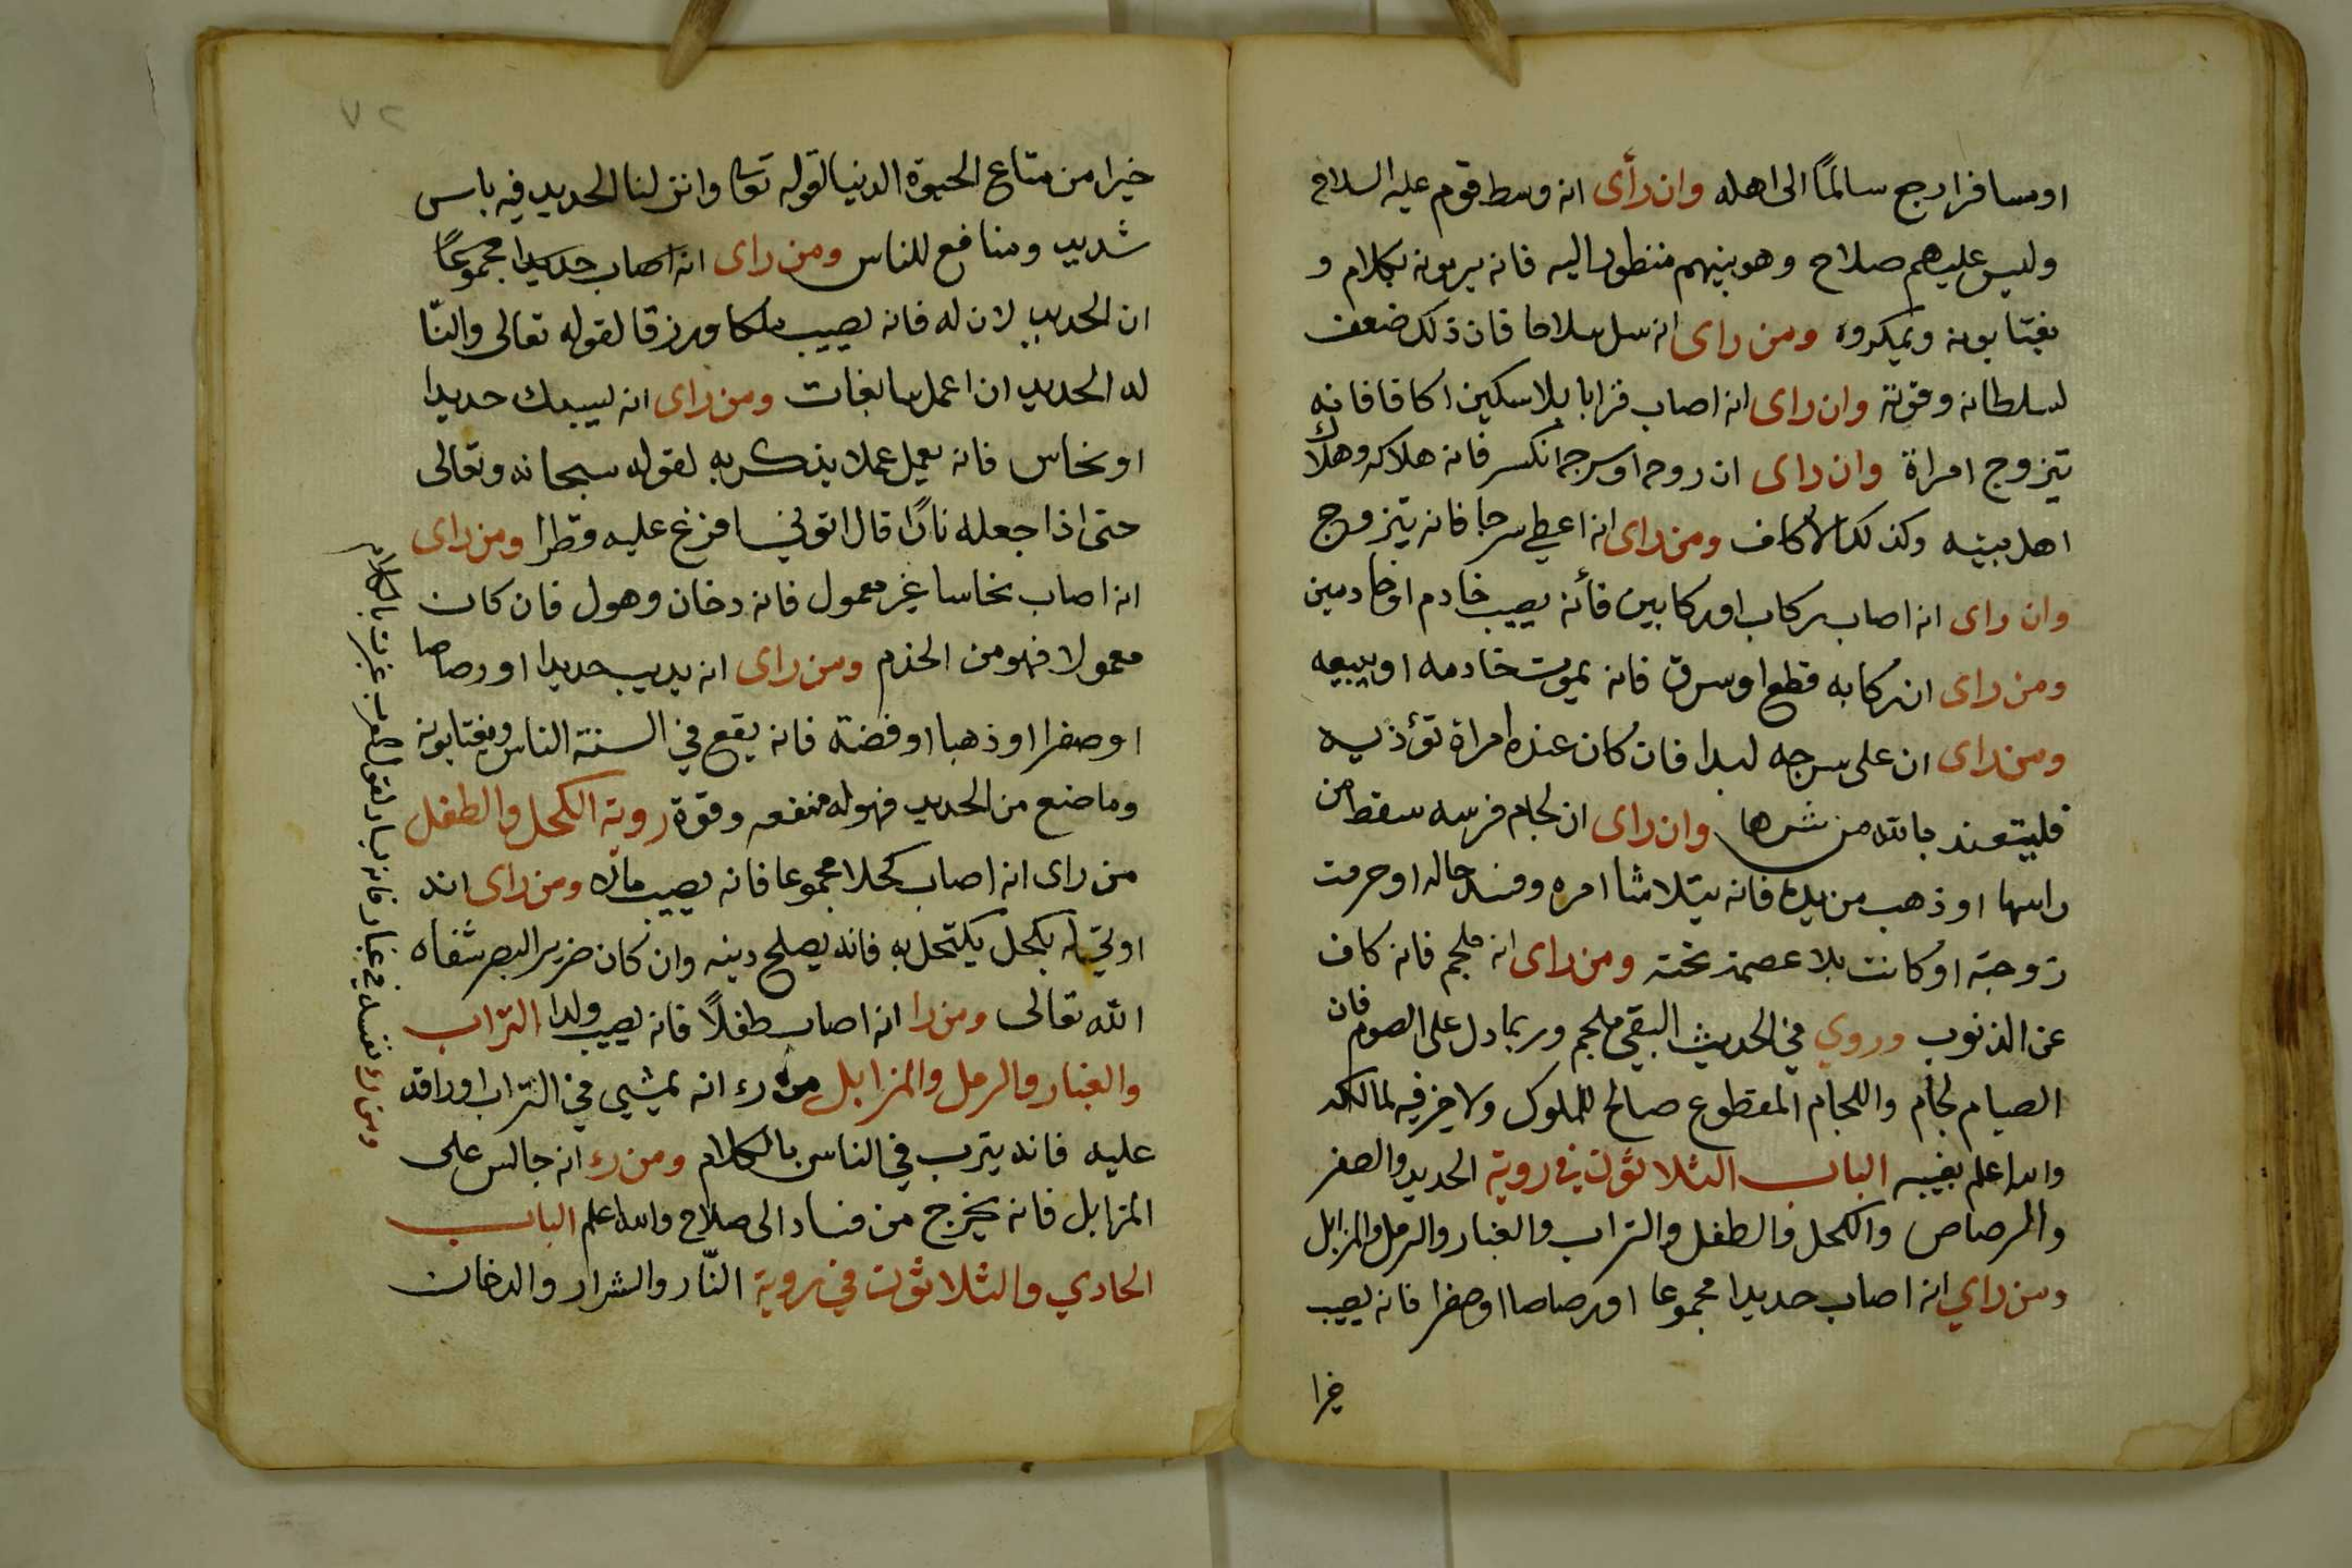 او مسافرا رجع سالمًا الى اهله وان رأى انه وسط قوم عليه السلاح
وليس عليهم صلاح وهو بينهم منظور اليه فانه يرمونه بكلام و
يغتابونه ويمكروه ومن راى انه سل سلاحا فان ذلك ضعف
لسلطانه وقوته وان راى انه اصاب قرابا بلا سكين اكافا فانه
يتزوج امراة وان راى ان روحه او سرجه انكسر فانه هلاكه وهلاك
اهل بيته وكذلك الاكاف ومن راى انه اعطي سرجا فانه يتزوج
وان راى انه اصاب ركاب او ركابين فأنه يصيب خادم او خادمين
ومن راى ان ركابه قطع او سرق فانه يموت خادمه او يبيعه
ومن راى ان على سرجه لبدا فان كان عنده امراة تؤذيه
فليتعوذ بالله من شرها وان راى ان لجام فرسه سقط من
راسها او ذهب من يده فانه يتلاشا امره وفسد حاله او حرمت
زوجته او كانت بلا عصمة تحته ومن راى انه ملجم فانه كاف
عن الذنوب وروي في الحديث التقي ملجم وربما دل على الصوم فان
الصيام لجام واللجام المقطوع صالح للملوك ولا خير فيه لمالكه
والله اعلم بغيبه الباب الثلاثون في روية الحديد والصفر
والرصاص والكحل والطفل والتراب والغبار والرمل والمزابل
ومن راي انه اصاب حديدا مجموعا او رصاصا او صفرا فانه يصيب
خيرا
٧٢
خيرا من متاع الحيوة الدنيا لقوله تعا وانزلنا الحديد فيه باس
شديد ومنافع للناس ومن راى انه اصاب حديدا مجموعًا
ان الحديد لان له فانه يصيب ملكا ورزقا لقوله تعالى والنّا
له الحديد ان اعمل سابغات ومن راى انه يسبك حديدا
او نحاس فانه يعمل عملا يذكر به لقوله سبحانه وتعالى
حتى اذا جعله نارًا قال اتوني افرغ عليه قطرا ومن راى
انه اصاب نحاسا غير معمول فانه دخان وهول فان كان
معمولا فهو من الخدم ومن راى انه يديب حديدا او رصاصا
او صفرا او ذهبا او فضة فانه يقع في السنة الناس ويغتابونه
وما صنع من الحديد فهو له منفعه وقوة روية الكحل والطفل
من راى انه اصاب كحلا مجموعا فانه يصيب مالا ومن راى انه
اوتي له بكحل يكتحل به فانه يصلح دينه وان كان ضرير البصر شفاه
الله تعالى ومن را انه اصاب طفلاً فانه يصيب ولدا التراب
والغبار والرمل والمزابل من رء انه يمشي في التراب او راقد
عليه فانه يترب في الناس بالكلام ومن رء انه جالس على
المزابل فانه يخرج من فساد الى صلاح والله اعلم الباب
الحادي والثلاثون في روية النّار والشرار والدخان
ومن رء نفسه في غبار فانه لقول العرب غبرت بالكلام